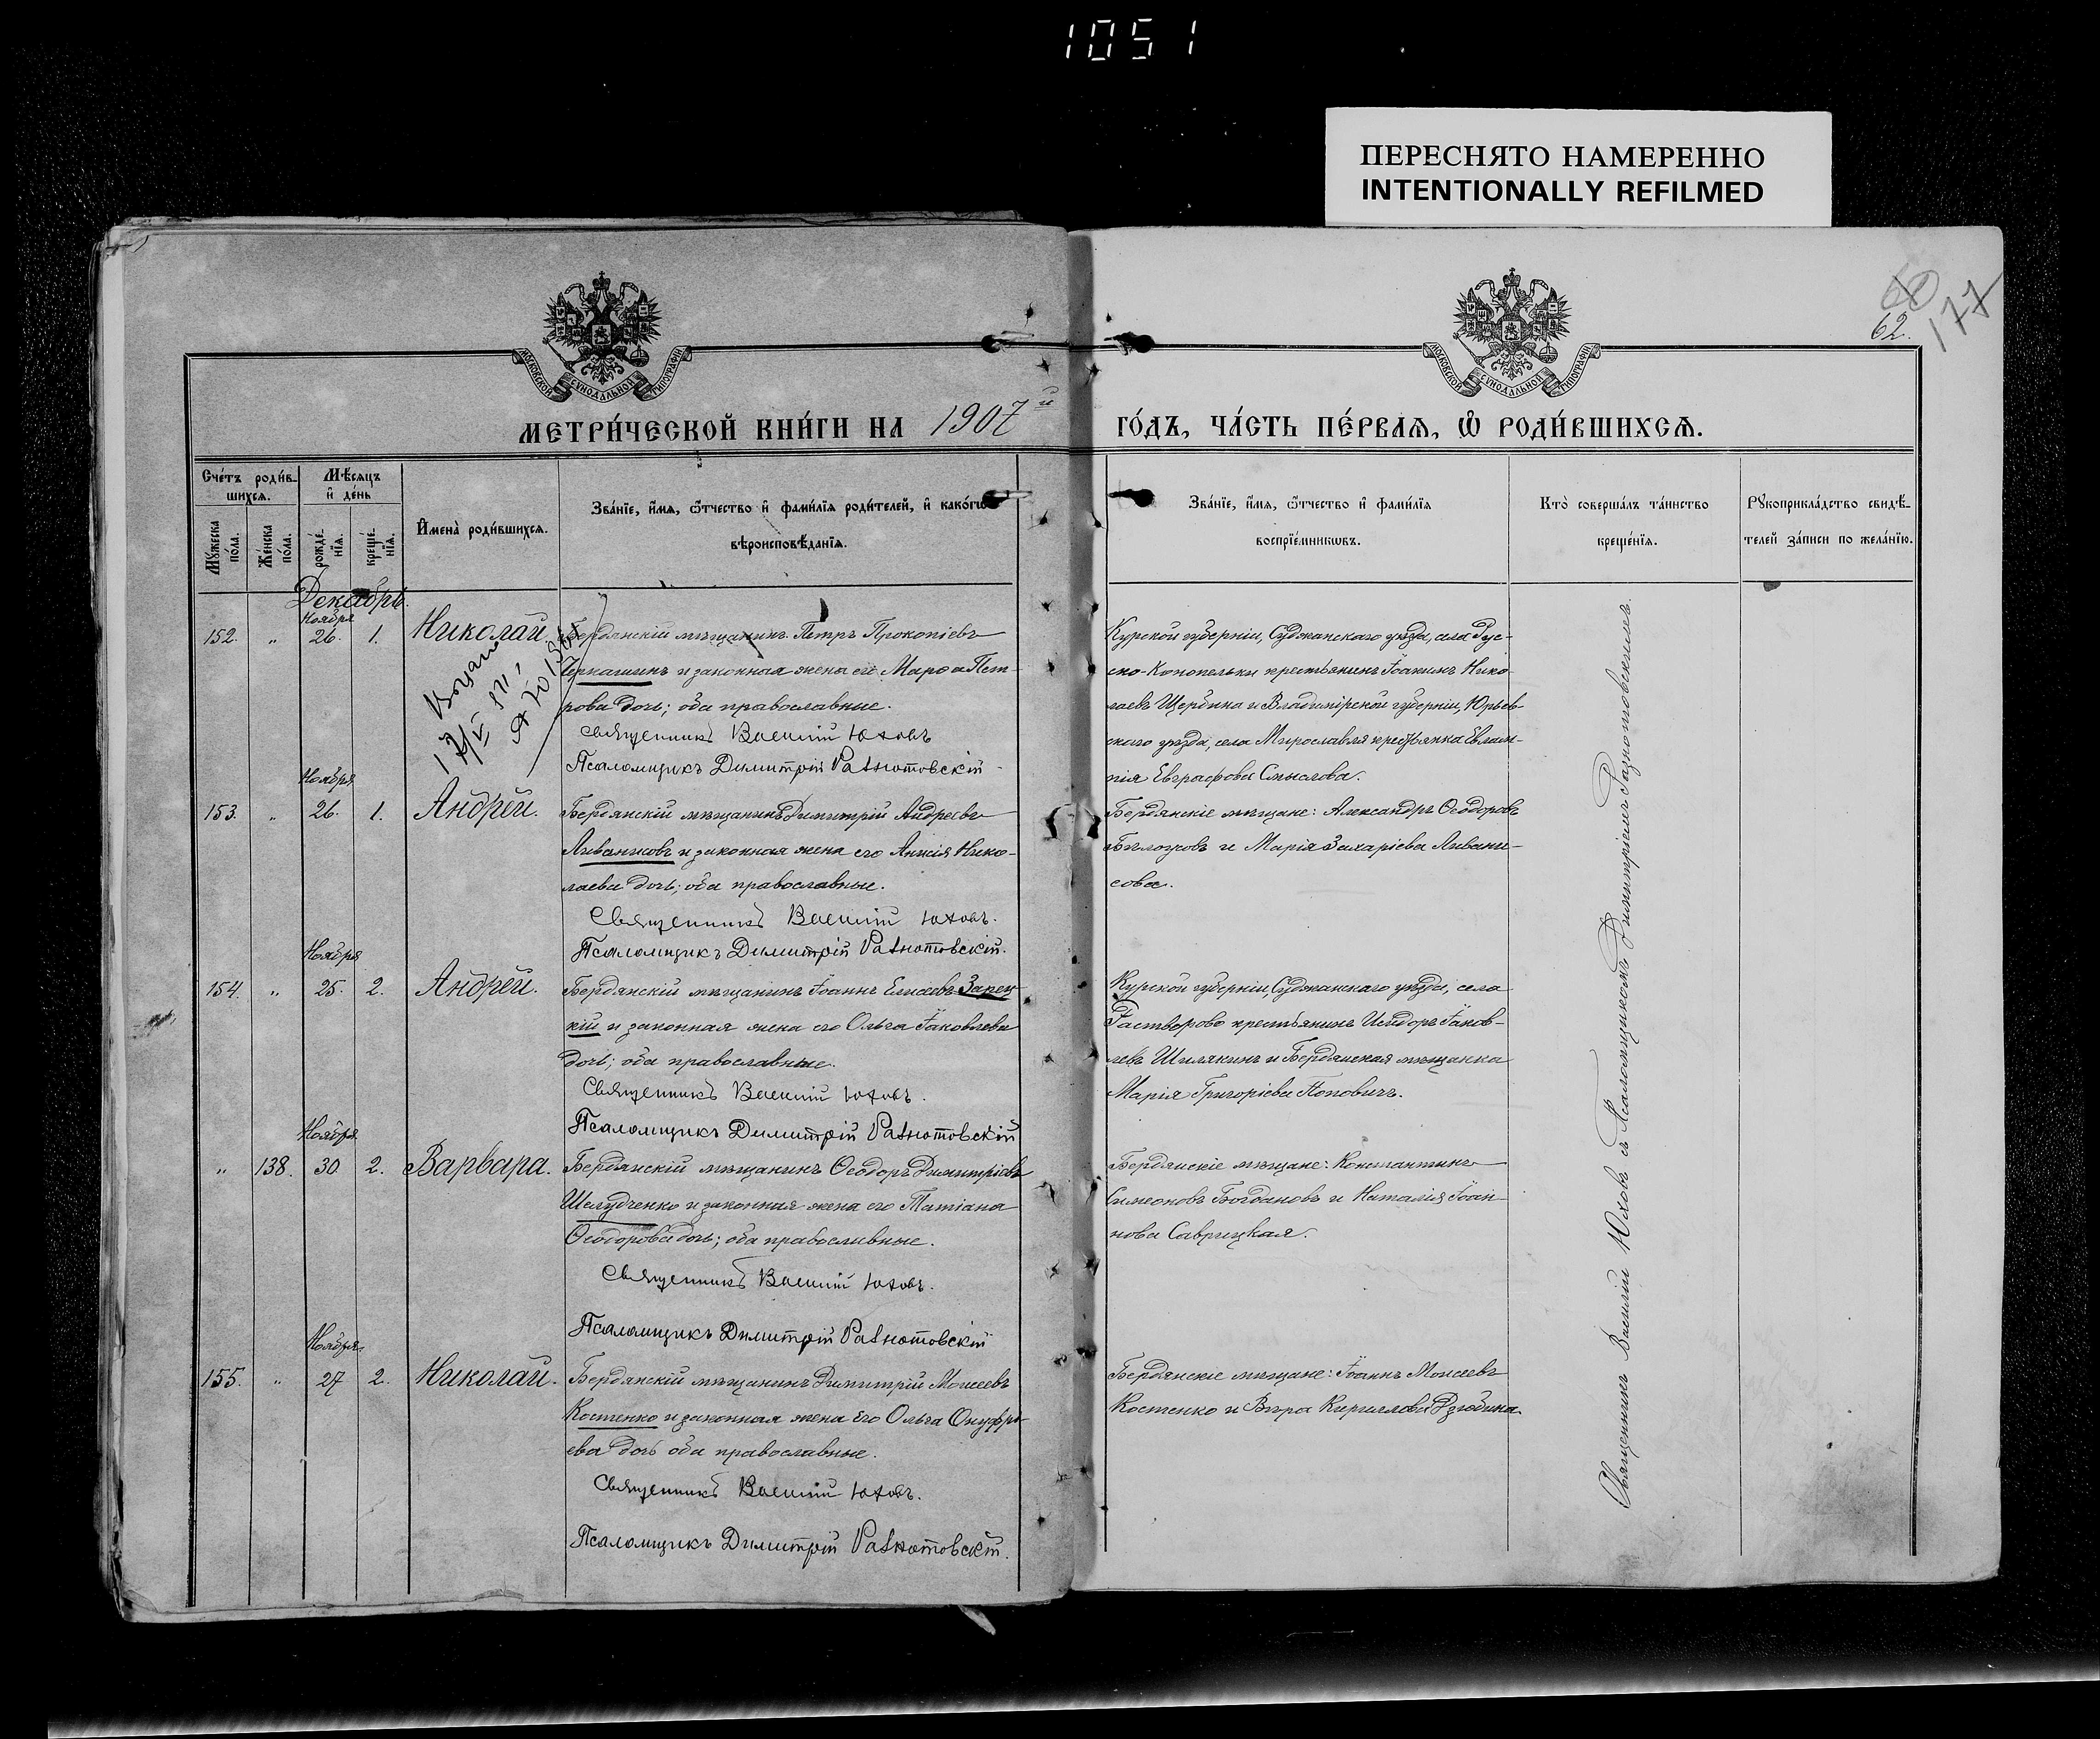 1051
ПЕРЕСНЯТО НАМЕРЕННО
INTENTIONALLY REFILMED
60
177
62.
МОСКОВСКОЙ СѴНОДАЛЬНОЙ ТИПОГРАФІИ
МОСКОВСКОЙ СѴНОДАЛЬНОЙ ТИПОГРАФІИ
МЕТРИ́ЧЕСКОЙ КНИ́ГИ НА 1907й
ГО́ДЪ, ЧА́СТЬ ПЕ́РВАЯ, Ѡ РОДИ́ВШИХСЯ.
Сче́тъ роди́вшихся.
Мѣсяцъ и де́нь
Мꙋжеска по́ла.
Же́нска по́ла.
рожде́нїя.
креще́нїя.
И҆мена̀ роди́вшихся.
Зва́нїе, и҆́мя, ѻ҆́тчество и҆ фами́лїя роди́телей, и҆ како́гѡ
вѣроисповѣ́данїя.
Зва́нїе, и҆́мя, ѻ҆́тчество и҆ фами́лїя
воспрїе́мникѡвъ.
Кто̀ соверша́лъ та́инство
креще́нїя.
Рꙋкоприкла́дство свидѣ́-
телей за́писи по жела́нїю.
Декабрь.
Ноября
152. " 26. 1. Николай. Бердянскій мѣщанинъ Петръ Прокопіевъ
Черкашинъ и законная жена его Марѳа Пет-
рова дочь; оба православные.
Священникъ Василій Юховъ
Псаломщикъ Димитрій Разнотовскій
Курской губерніи, Суджанскаго уѣзда, села Рус-
ско-Конопельки крестьянинъ Іоакимъ Нико-
лаевъ Щербина и Владимірской губерніи, Юрьев-
скаго уѣзда, села Мирославля крестьянка Евлам-
пія Евграфова Смыслова.
Ноября
153. " 26. 1. Андрей. Бердянскій мѣщанинъ Димитрій Андреевъ
Ливанисовъ и законная жена его Анисія Нико-
лаева дочь; оба православные.
Священникъ Василій Юховъ.
Псаломщикъ Димитрій Разнотовскій.
Бердянскіе мѣщане: Александръ Ѳеодоровъ
Бѣлоусовъ и Марія Захаріева Ливани-
сова.
Ноября
154. " 25. 2. Андрей. Бердянскій мѣщанинъ Іоаннъ Елисеевъ Зарец-
кій и законная жена его Ольга Іаковлева
дочь; оба православные.
Священникъ Василій Юховъ.
Псаломщикъ Димитрій Разнотовскій
Курской губерніи, Суджанскаго уѣзда, села
Растворово крестьянинъ Исидоръ Іаков-
левъ Шилякинъ и Бердянская мѣщанка
Марія Григоріева Поповичъ.
Ноября
" 138. 30 2. Варвара. Бердянскій мѣщанинъ Ѳеодоръ Димитріевъ
Шелудченко и законная жена его Татіана
Ѳеодорова дочь; оба православные.
Священникъ Василій Юховъ.
Псаломщикъ Димитрій Разнотовскій
Бердянскіе мѣщане: Константинъ
Симеоновъ Богдановъ и Наталія Іоан-
нова Саврицкая.
Ноября
155. " 27 2. Николай. Бердянскій мѣщанинъ Димитрій Моисеевъ
Костенко и законная жена его Ольга Онуфрі-
ева дочь оба православные.
Священникъ Василій Юховъ.
Псаломщикъ Димитрій Разнотовскій.
Бердянскіе мѣщане: Іоаннъ Моисеевъ
Костенко и Вѣра Кириллова Дзюбина.
Священникъ Василій Юховъ съ Псаломщикомъ Димитріемъ Разнотовскимъ.